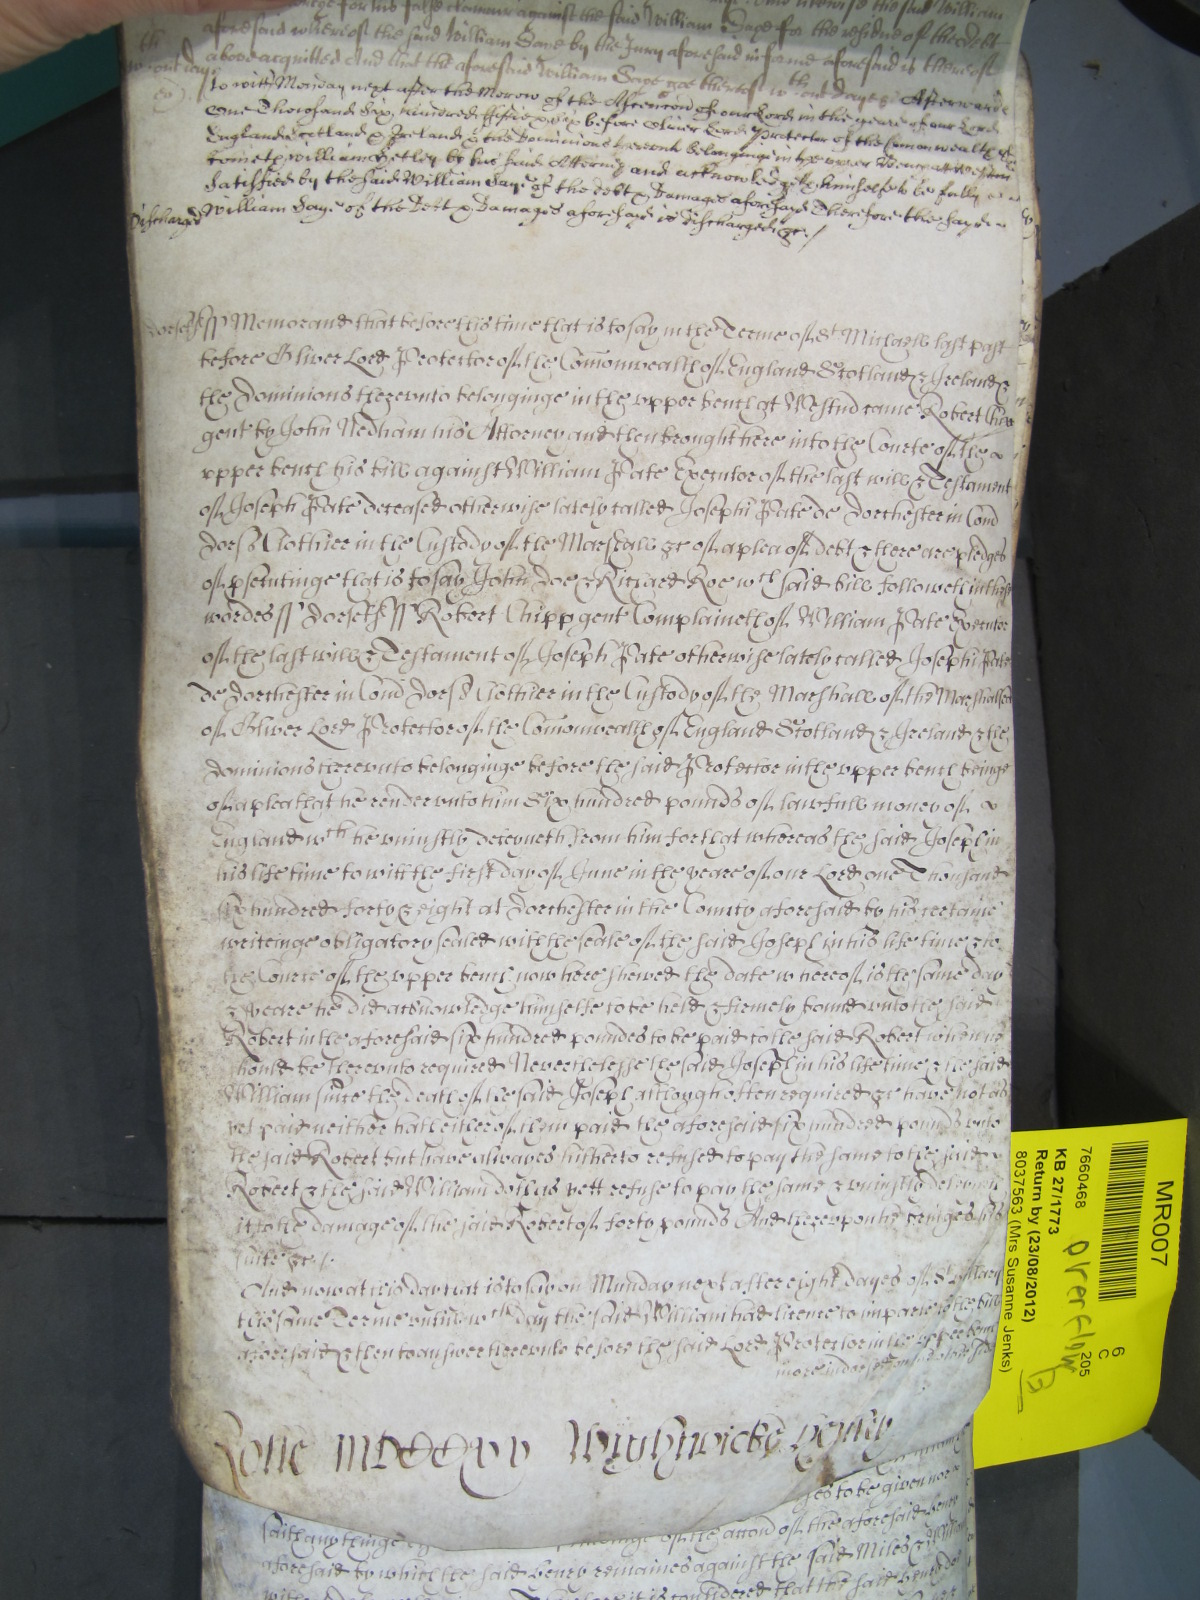 aforesaid whereof the said William Saye by the Jury aforesaid in forme aforesaid is thereof
above acquitted And that the aforesaid William Saye goe thereof wthout daye &c Afterwards
to witt Monday next after the Morow of the Ascencion of our Lord in the yeare of our Lord
One Thousand Six hundred fiftie & six before Oliver Lord Protector of the Commonwealth of
England Scotland & Ireland & the Dominions thereunto belonginge in the upper Bench att Westmr
cometh William by his said Attorney and acknowledgeth himselfe to be fully
satisfied by the said William Saye of the debt & Damages aforesayd Therefore the sayd
Discharged William Saye of the Debt & Damages aforesayd is discharged &c /
Dorset ss Memorand that before this time that is to say in the Terme of St Michaell last past
before Oliver Lord Protector of the Comonwealth of England Scotland & Ireland &
the Dominions thereunto belonginge in the upper bench at Westm came Robert Chipp
gent by John Nedham his Attorney and then brought here into the Courte of the
upper bench his bill against William Pate Executor of the last will & Testament
of Joseph Pate deceased otherwise lately called Joseph Pate de Dorchester in Com
Dors Clothier in the Custody of the Marshall &c of a plea of debt & there are pledges
of psecutinge that is to say John Doe & Richard Roe wch said bill followeth in these
wordes ss Dorset ss Robert Chipp gent Complaineth of William Pate Executor
of the last will & Testament of Joseph Pate otherwise lately called Joseph Pate
de Dorchester in Com Dors Clothier in the Custody of the Marshall of the Marshallsea
of Oliver Lord Protector of the Comonwealth of England Scotland & Ireland & the
Dominions thereunto belonginge before the said Protector in the upper bench beinge
of a plea that he render unto him Six hundred pounds of lawfull money of
England wch he uniustly deteyneth from him for that whereas the said Joseph in
his life time to witt the first day of June in the yeare of our Lord one Thousand
six hundred forty & eight at Dorchester in the County aforesaid by his certaine
writeinge obligatory sealed with the seale of the said Joseph in his life time & to
the Courte of the upper bench now here shewed the date whereof is the same day
& yeare he did acknowledge himselfe to be held & firmely bound unto the said
Robert in the aforesaid six hundred poundes to be paid to the said Robert when he
should be thereunto required Neverthelesse the said Joseph in his life time & the said
William since the death of the said Joseph although often required &c have not as
yet paid neither hath either of them paid the aforesaid six hundred pounds unto
the said Robert but have alwayes hitherto refused to pay the same to the said
Robert & the said William doth as yett refuse to pay the same & uniustly deteyne
it to the damage of the said Robert of forty pounds And thereupon he bringes his
suite &c /.
And now at this day that is to say on Munday next after eight dayes of St Hillary
this same Terme untill wch day the said William had licence to imparle to the bill
aforesaid & then to answer thereunto before the said Lord Protector in the upper bench
more indorsed on the other side
Rolle MDCCXV Wightwicke
ges to be given nor
saith any thinge of the accon of the aforesaid henry
aforesaid by which the said henry remaines against the said Miles &
that the said henry
MR007
6
C
205
7660468
KB 27/1773
Return by (23/08/2012)
8037563 (Mrs Susanne Jenks)
overflow